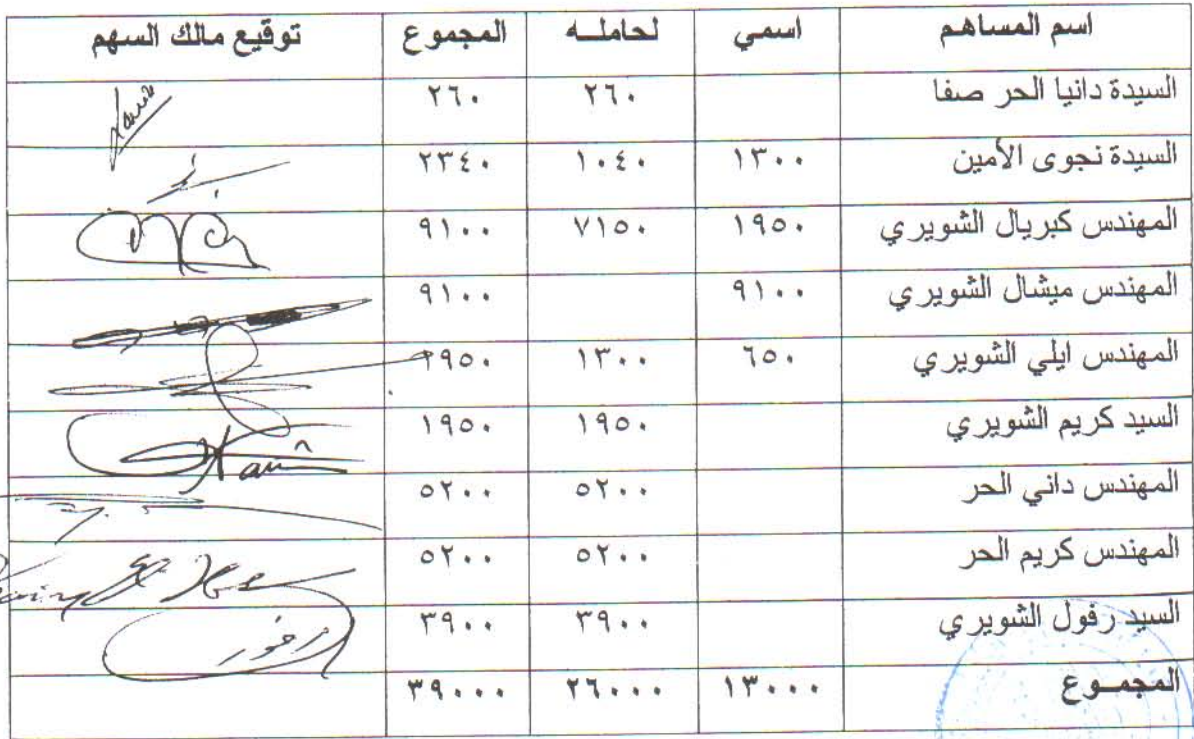 اسم المساهم اسمي لحاملـه المجموع توقيع مالك السهم
السيدة دانيا الحر صفا ٢٦٠ ٢٦٠
السيدة نجوى الأمين ١٣٠٠ ١٠٤٠ ٢٣٤٠
المهندس كبريال الشويري ١٩٥٠ ٧١٥٠ ٩١٠٠
المهندس ميشال الشويري ٩١٠٠ ٩١٠٠
المهندس ايلي الشويري ٦٥٠ ١٣٠٠ ١٩٥٠
السيد كريم الشويري ١٩٥٠ ١٩٥٠
المهندس داني الحر ٥٢٠٠ ٥٢٠٠
المهندس كريم الحر ٥٢٠٠ ٥٢٠٠
السيد رفول الشويري ٣٩٠٠ ٣٩٠٠
المجمـوع ١٣٠٠٠ ٢٦٠٠٠ ٣٩٠٠٠